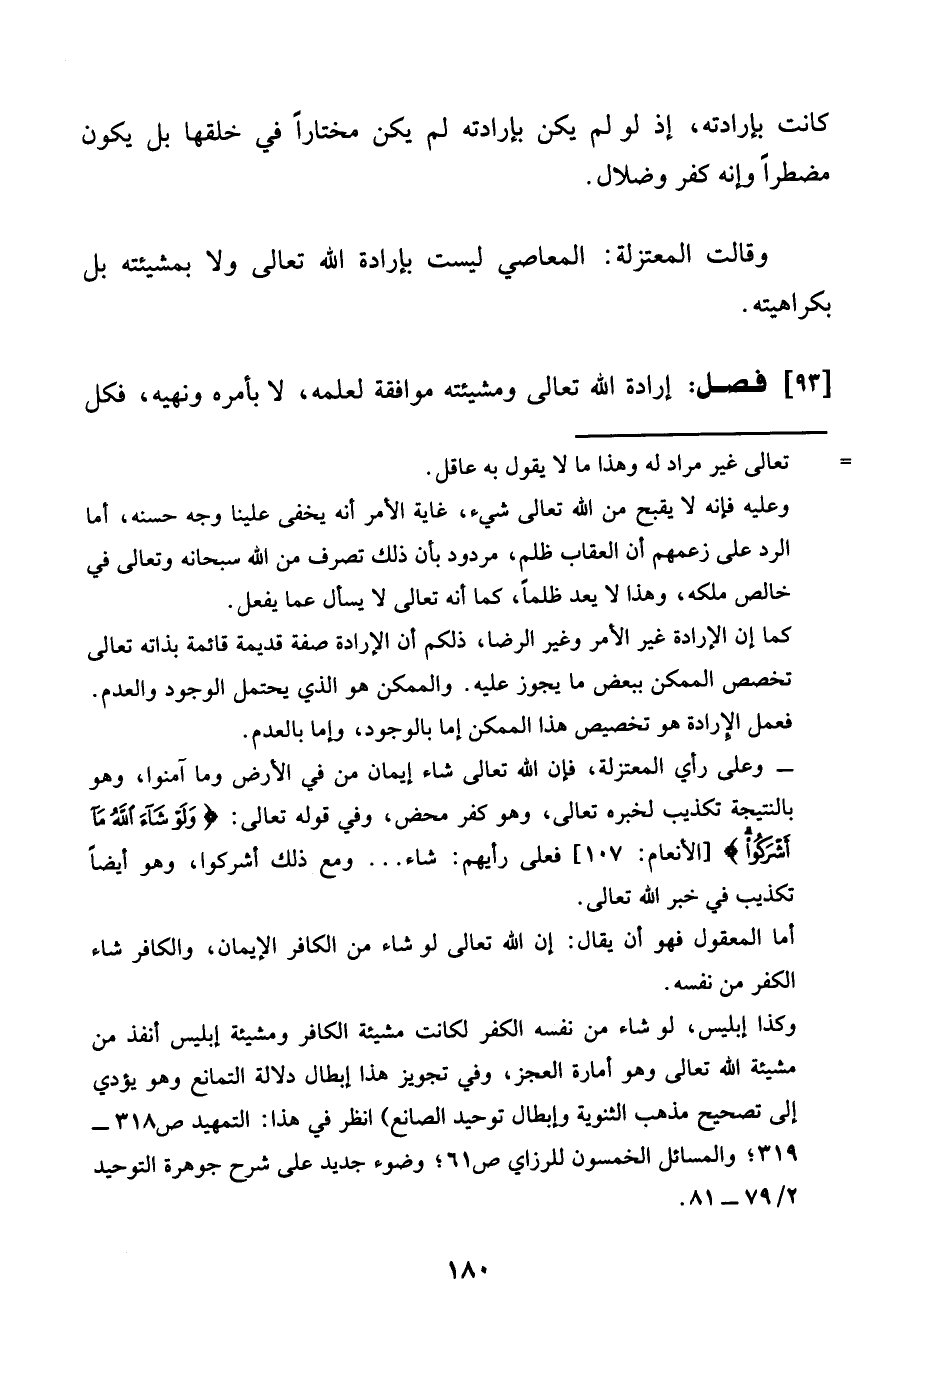 كانت بإرادته، إذ لو لم يكن بإرادته لم يكن مختاراً في خلقها بل يكون
مضطراً وإنه كفر وضلال.
وقالت المعتزلة: المعاصي ليست بإرادة الله تعالى ولا بمشيئته بل
بكراهيته.
[٩٣] فصل: إرادة الله تعالى ومشيئته موافقة لعلمه، لا بأمره ونهيه، فكل
= تعالى غير مراد له وهذا ما لا يقول به عاقل.
وعليه فإنه لا يقبح من الله تعالى شيء، غاية الأمر أنه يخفى علينا وجه حسنه، أما
الرد على زعمهم أن العقاب ظلم، مردود بأن ذلك تصرف من الله سبحانه وتعالى في
خالص ملكه، وهذا لا يعد ظلماً، كما أنه تعالى لا يسأل عما يفعل.
كما إن الإرادة غير الأمر وغير الرضا، ذلكم أن الإرادة صفة قديمة قائمة بذاته تعالى
تخصص الممكن ببعض ما يجوز عليه. والممكن هو الذي يحتمل الوجود والعدم.
فعمل الإرادة هو تخصيص هذا الممكن إما بالوجود، وإما بالعدم.
ــ وعلى رأي المعتزلة، فإن الله تعالى شاء إيمان من في الأرض وما آمنوا، وهو
بالنتيجة تكذيب لخبره تعالى، وهو كفر محض، وفي قوله تعالى: ﴿وَلَوْ شَآءَ ٱللَّهُ مَآ
أَشْرَكُواْ﴾ [الأنعام: ١٠٧] فعلى رأيهم: شاء... ومع ذلك أشركوا، وهو أيضاً
تكذيب في خبر الله تعالى.
أما المعقول فهو أن يقال: إن الله تعالى لو شاء من الكافر الإيمان، والكافر شاء
الكفر من نفسه.
وكذا إبليس، لو شاء من نفسه الكفر لكانت مشيئة الكافر ومشيئة إبليس أنفذ من
مشيئة الله تعالى وهو أمارة العجز، وفي تجويز هذا إبطال دلالة التمانع وهو يؤدي
إلى تصحيح مذهب الثنوية وإبطال توحيد الصانع) انظر في هذا: التمهيد ص٣١٨ ــ
٣١٩؛ والمسائل الخمسون للرزاي ص٦١؛ وضوء جديد على شرح جوهرة التوحيد
٢/ ٧٩ ــ ٨١.
١٨٠